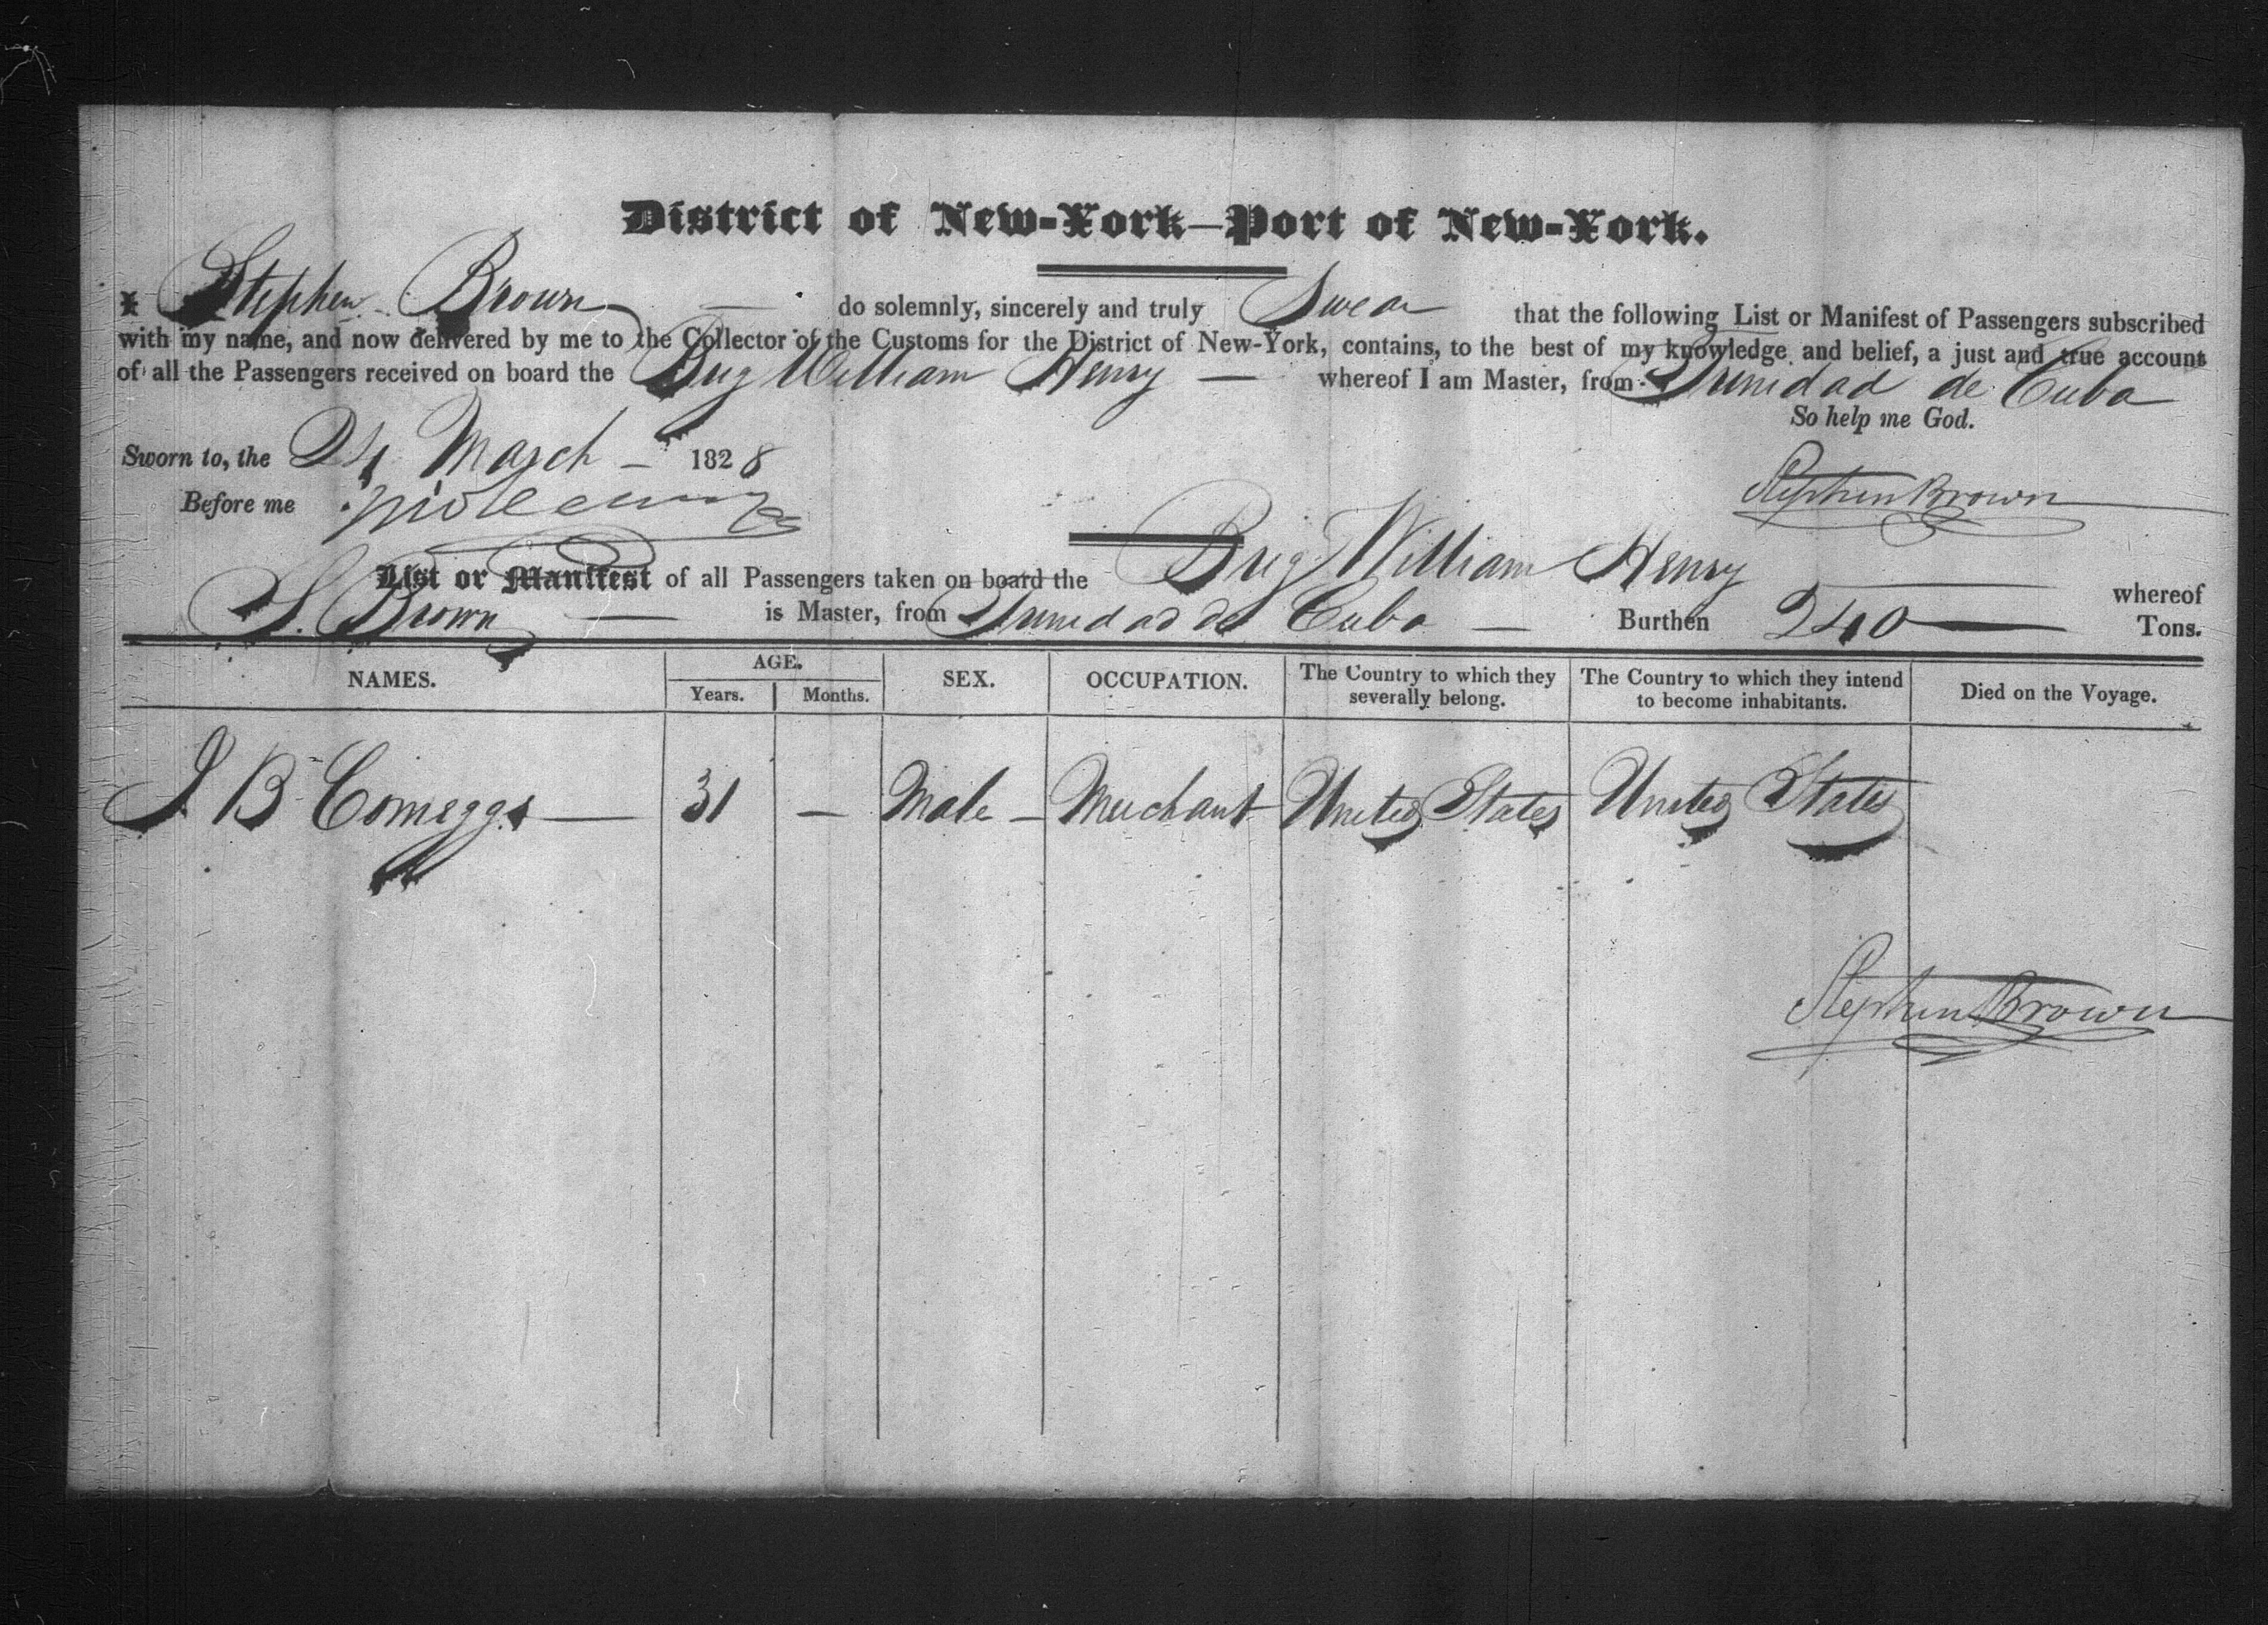 District of New-York—Port of New-York.
I Stephen Brown — do solemnly, sincerely and truly Swear that the following List or Manifest of Passengers subscribed
with my name, and now delivered by me to the Collector of the Customs for the District of New-York, contains, to the best of my knowledge and belief, a just and true account
of all the Passengers received on board the Brig William Henry — whereof I am Master, from Trinidad de Cuba
So help me God.
Sworn to, the 24 March — 1828
Stephen Brown
Before me
List or Manifest of all Passengers taken on board the Brig William Henry whereof
S. Brown — is Master, from Trinidad de Cuba — Burthen 240 — Tons.
NAMES. AGE. SEX. OCCUPATION. The Country to which they severally belong. The Country to which they intend to become inhabitants. Died on the Voyage.
Years. Months.
J B Comeggs — 31 — Male — Merchant United States United States
Stephen Brown